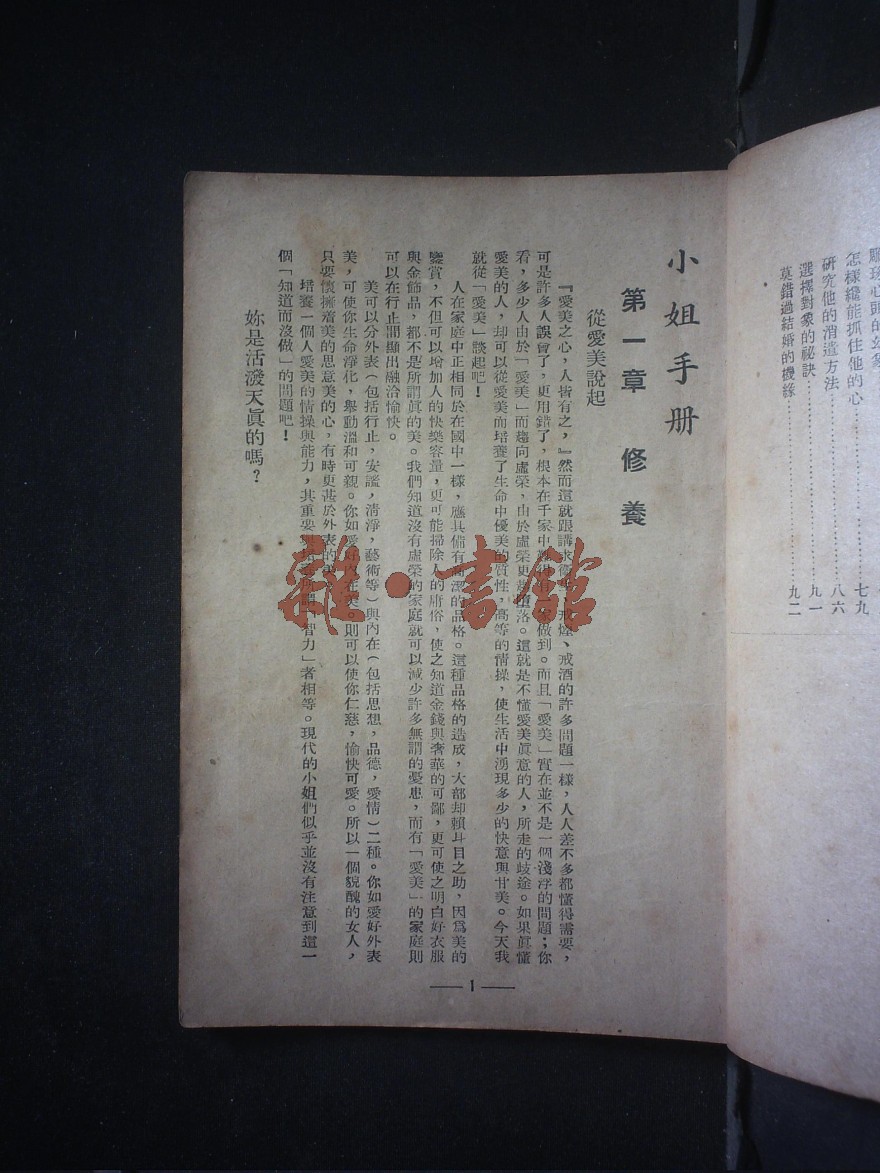 心頭的幻象
怎樣纔能抓住他的心……………七九
研究他的消遣方法……………八六
選擇對象的祕訣……………九一
莫錯過結婚的機緣……………九二
小姐手册
第一章 修養
從愛美說起
『愛美之心，人皆有之，』然而這就跟講求衛生、戒煙、戒酒的許多問題一樣，人人差不多都懂得需要，
可是許多人誤會了，更用錯了，根本在千家中難得家做到。而且「愛美」實在並不是一個淺浮的問題；你
看，多少人由於「愛美」而趨向虛榮，由於虛榮更墮落。這就是不懂愛美眞意的人，所走的歧途。如果眞懂
愛美的人，却可以從愛美而培養了生命中優美的質性，高等的情操，使生活中湧現多少的快意與甘美。今天我
就從「愛美」談起吧！
人在家庭中正相同於在國中一樣，應具備有高潔的品格。這種品格的造成，大部却賴斗目之助，因爲美的
鑒賞，不但可以增加人的快樂容量，更可能掃除人的庸俗，使之知道金錢與奢華的可鄙，更可使之明白好衣服
與金飾品，都不是所謂眞的美。我們知道沒有虛榮的家庭就可以減少許多無謂的憂患，而有「愛美」的家庭則
可以在行止間顯出融洽愉快。
美可以分外表（包括行止，安謐，清淨，藝術等）與內在（包括思想，品德，愛情）二種。你如愛好外表
美，可使你生命淨化，舉動溫和可親。你如愛好內在美。則可以使你仁慈，愉快可愛。所以一個貌醜的女人，
只要懷擁着美的思意美的心，有時更甚於外表的美。
培養一個人愛美的情操與能力，其重要與培養「智力」者相等。現代的小姐們似乎並沒有注意到這一
個「知道而沒做」的問題吧！
妳是活潑天眞的嗎？
1
雜·書館